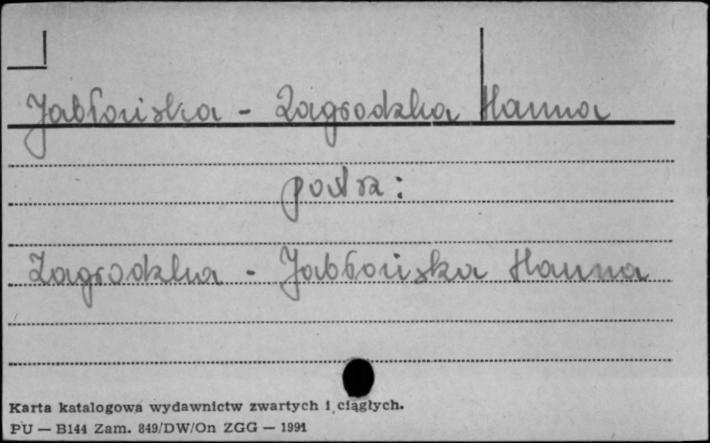 Jabłońska - Zagrodzka Hanna
patrz:
Zagrodzka - Jabłońska Hanna
Karta katalogowa wydawnictw zwartych i ciągłych.
PU — B144 Zam. 849/DW/On ZGG — 1991